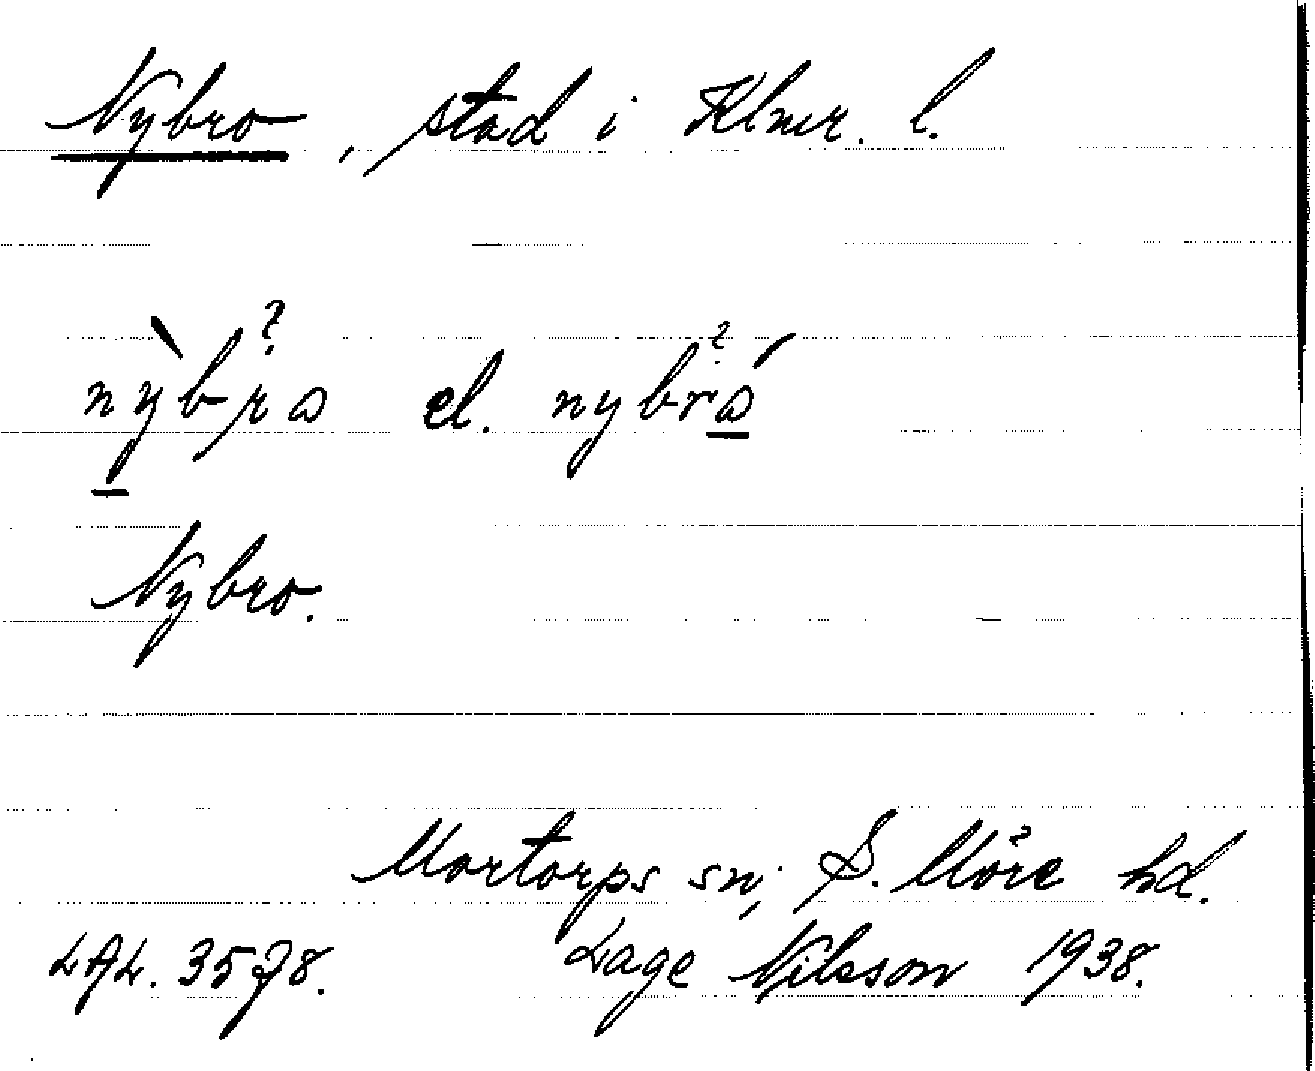 Nybro, stad i Klmr. l.
nỳbro el. nybró
Nybro.
Mortorps sn; S. Möre hd.
LAL. 3578. Lage Nilsson 1938.